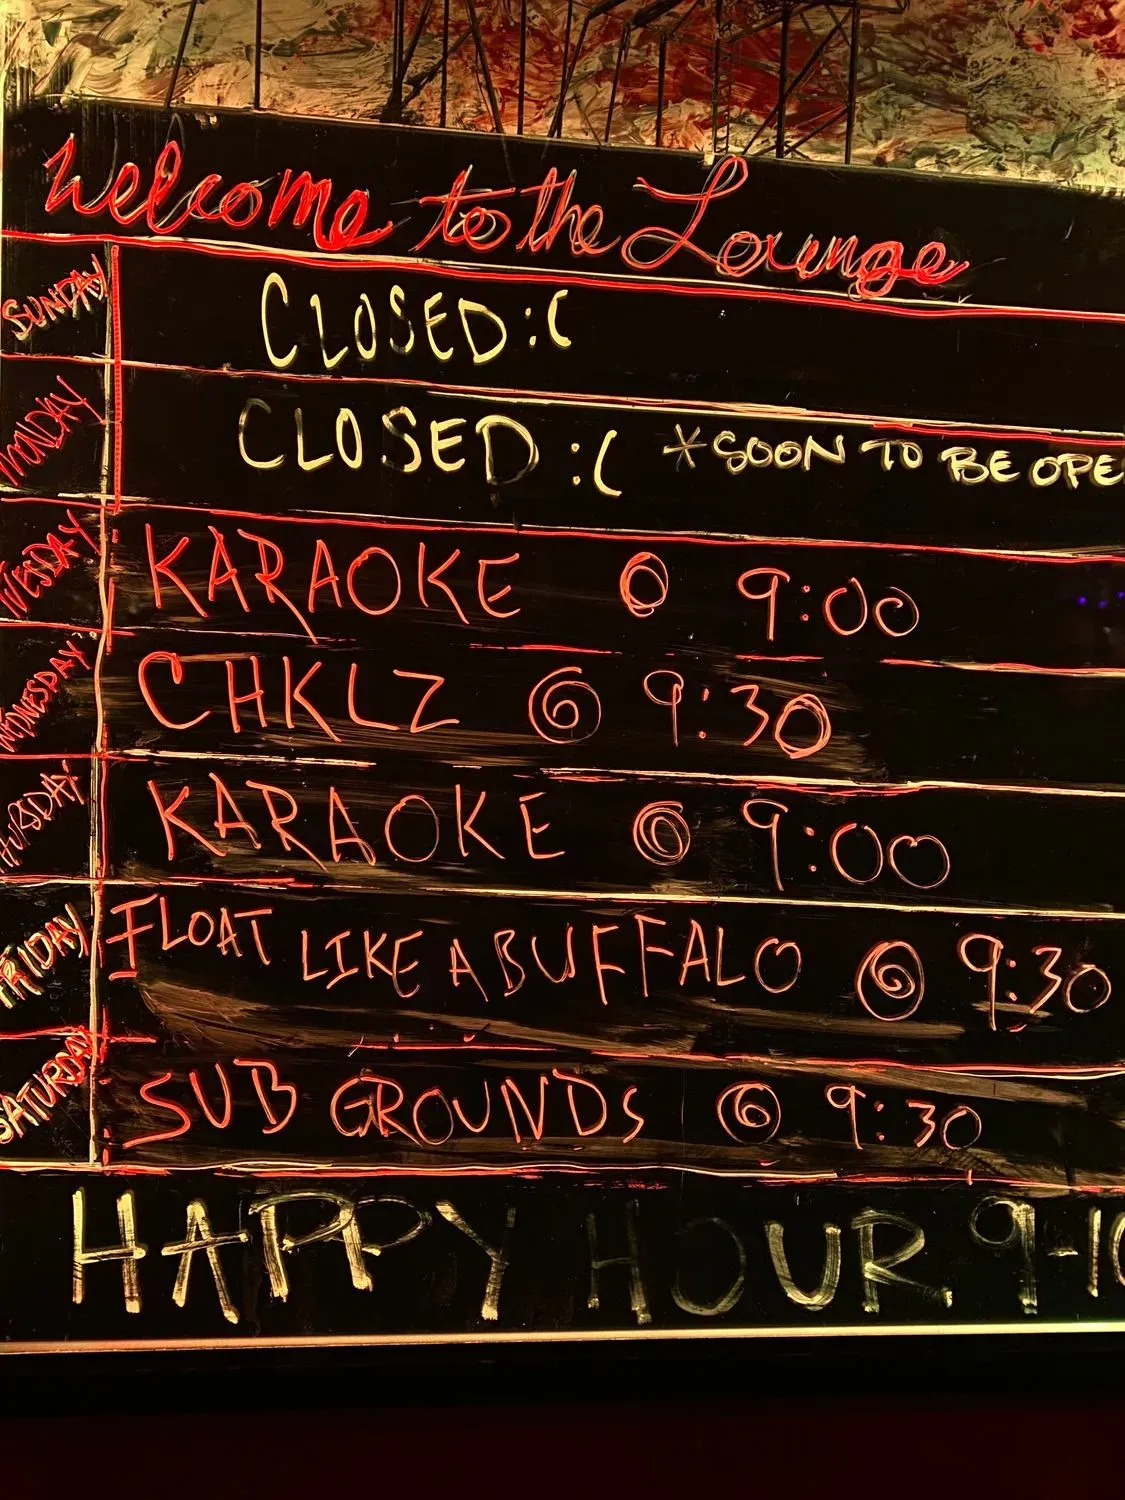 Welcome to the Lounge
SUNDAY CLOSED :(
MONDAY CLOSED :( *SOON TO BE OPE
TUESDAY KARAOKE @ 9:00
WEDNESDAY CHKLZ @ 9:30
HURSDAY KARAOKE @ 9:00
FRIDAY FLOAT LIKE A BUFFALO @ 9:30
SATURDAY SUB GROUNDS @ 9:30
HAPPY HOUR 9-10